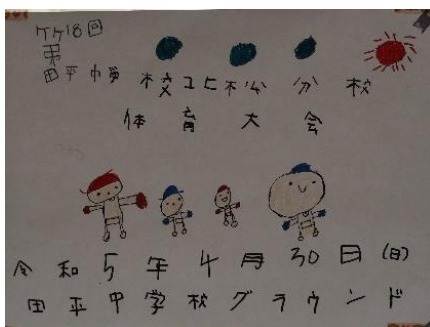 第18回
田平中学校北松分校
体育大会
令和5年4月30日(日)
田平中学校グラウンド